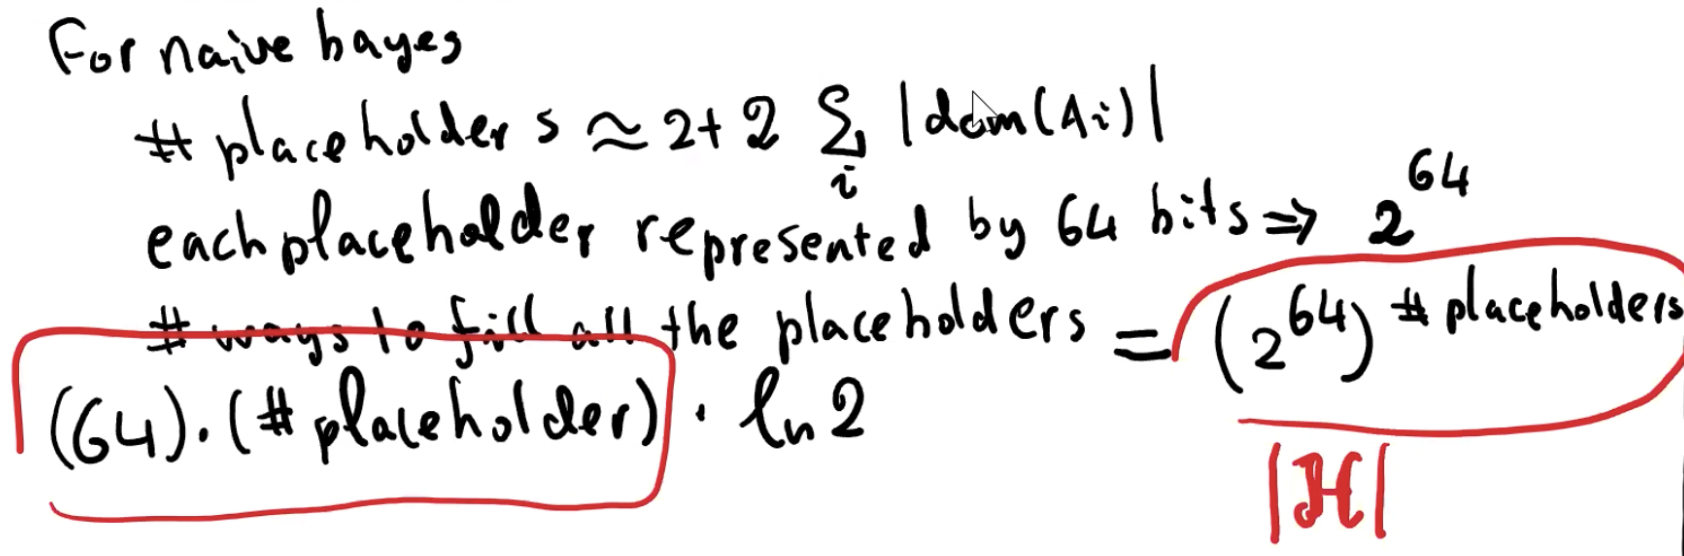 For naive bayes
# placeholders ≈ 2+2 Σ_i |dom(Ai)|
each placeholder represented by 64 bits ⇒ 2^64
# ways to fill all the placeholders = (2^64)^# placeholders
(64).(# placeholder) · ln 2
|H|